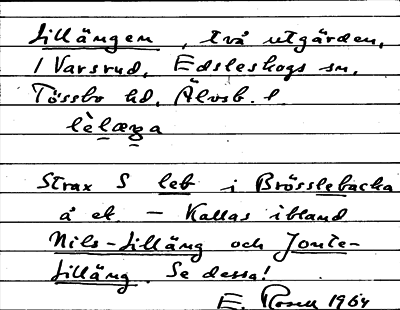 Lillängen, två utgårdar,
i Varsrud, Edsleskogs sn,
Tössbo hd, Älvsb. l
lèlæŋa
Strax S leb i Brösslebacka
å ek. – Kallas ibland
Nils-Lilläng och Jonte-
Lilläng. Se dessa!
E. Rosell 1964